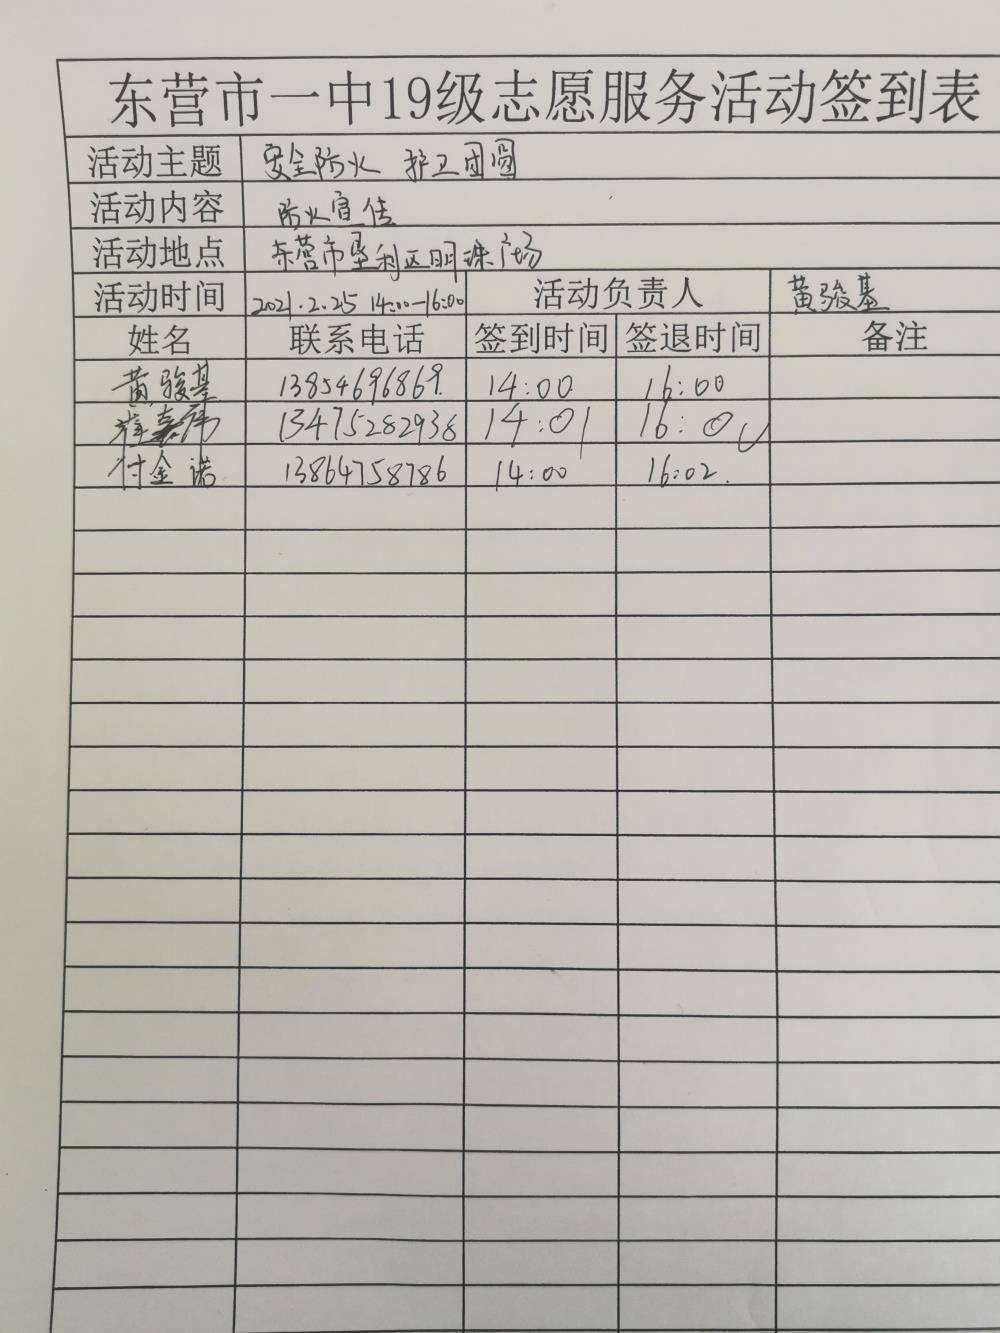 东营市一中19级志愿服务活动签到表
活动主题 安全防火 护卫团圆
活动内容 防火宣传
活动地点 东营市垦利区明珠广场
活动时间 2021.2.25 14:00-16:00 活动负责人 黄骏基
姓名 联系电话 签到时间 签退时间 备注
黄骏基 13854696869 14:00 16:00
13475282938 14:01 16:00
付金诺 13864758786 14:00 16:02.